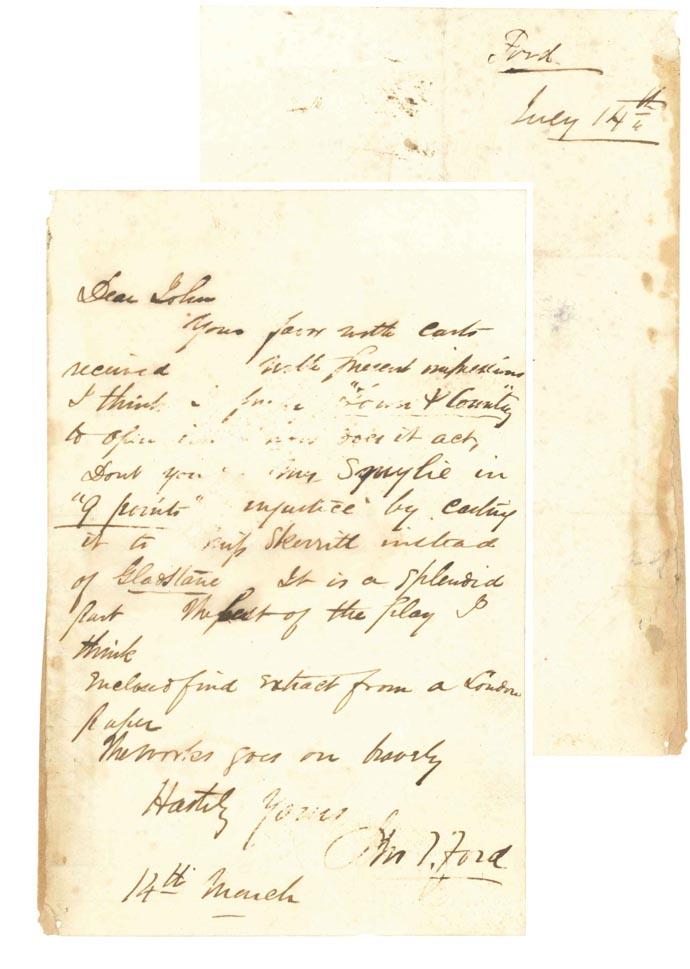 Ford
July 14th
Dear John
Your favor with casts
received with present impressions
I think "Town & Country"
to open does it act,
Dont you Smylie in
"9 points" injustice by casting
it to Skerritt instead
of Gladstane It is a splendid
part The best of the play I
think
Enclosed find extract from a London
paper
The works goes on bravely
Hastily Yours
Jno T. Ford
14th March